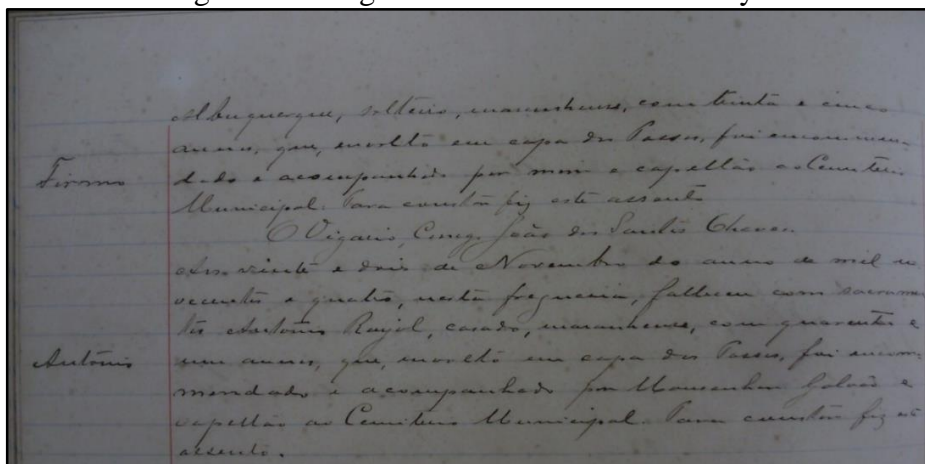 Albuquerque, solteiro, maranhense, com trinta e cinco
annos, que, envolto em capa dos Passos, foi encommen-
Firmo
dado e acompanhado por mim e capellão ao Cemiterio
Municipal. Para constar fiz este assento.
O Vigario, Coneg. João dos Santos Chaves.
Aos vinte e dois de Novembro do anno de mil no
vecentos e quatro, nesta freguezia, falleceu com sacramen
tos Antonio Rayol, casado, maranhense, com quarenta e
Antonio
um annos, que, envolto em capa dos Passos, foi encom
mendado e acompanhado por Monsenhor Galvão e
capellão ao Cemiterio Municipal. Para constar fiz este
assento.